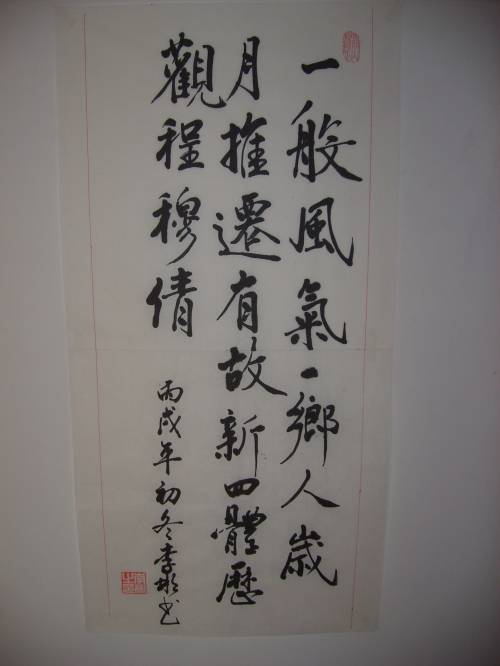 一般風氣一鄉人歲
月推遷有故新四體歷
觀程穆倩
丙戌年初冬李彬书